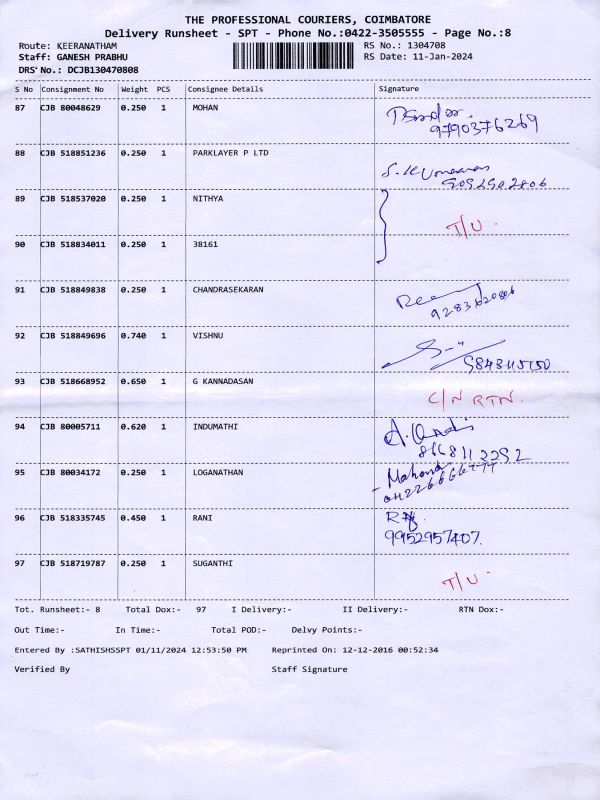 THE PROFESSIONAL COURIERS, COIMBATORE
Delivery Runsheet - SPT - Phone No.:0422-3505555 - Page No.:8
Route: KEERANATHAM RS No.: 1304708
Staff: GANESH PRABHU RS Date: 11-Jan-2024
DRS No.: DCJB130470808
S No Consignment No Weight PCS Consignee Details Signature
87 CJB 80048629 0.250 1 MOHAN
9790376269
88 CJB 518851236 0.250 1 PARKLAYER P LTD
89 CJB 518537020 0.250 1 NITHYA
T/U.
90 CJB 518834011 0.250 1 38161
91 CJB 518849838 0.250 1 CHANDRASEKARAN
92 CJB 518849696 0.740 1 VISHNU
93 CJB 518668952 0.650 1 G KANNADASAN
C/N RTN.
94 CJB 80005711 0.620 1 INDUMATHI
95 CJB 80034172 0.250 1 LOGANATHAN
96 CJB 518335745 0.450 1 RANI
9952957407.
97 CJB 518719787 0.250 1 SUGANTHI
T/U.
Tot. Runsheet:- 8 Total Dox:- 97 I Delivery:- II Delivery:- RTN Dox:-
Out Time:- In Time:- Total POD:- Delvy Points:-
Entered By :SATHISHSSPT 01/11/2024 12:53:50 PM Reprinted On: 12-12-2016 00:52:34
Verified By Staff Signature